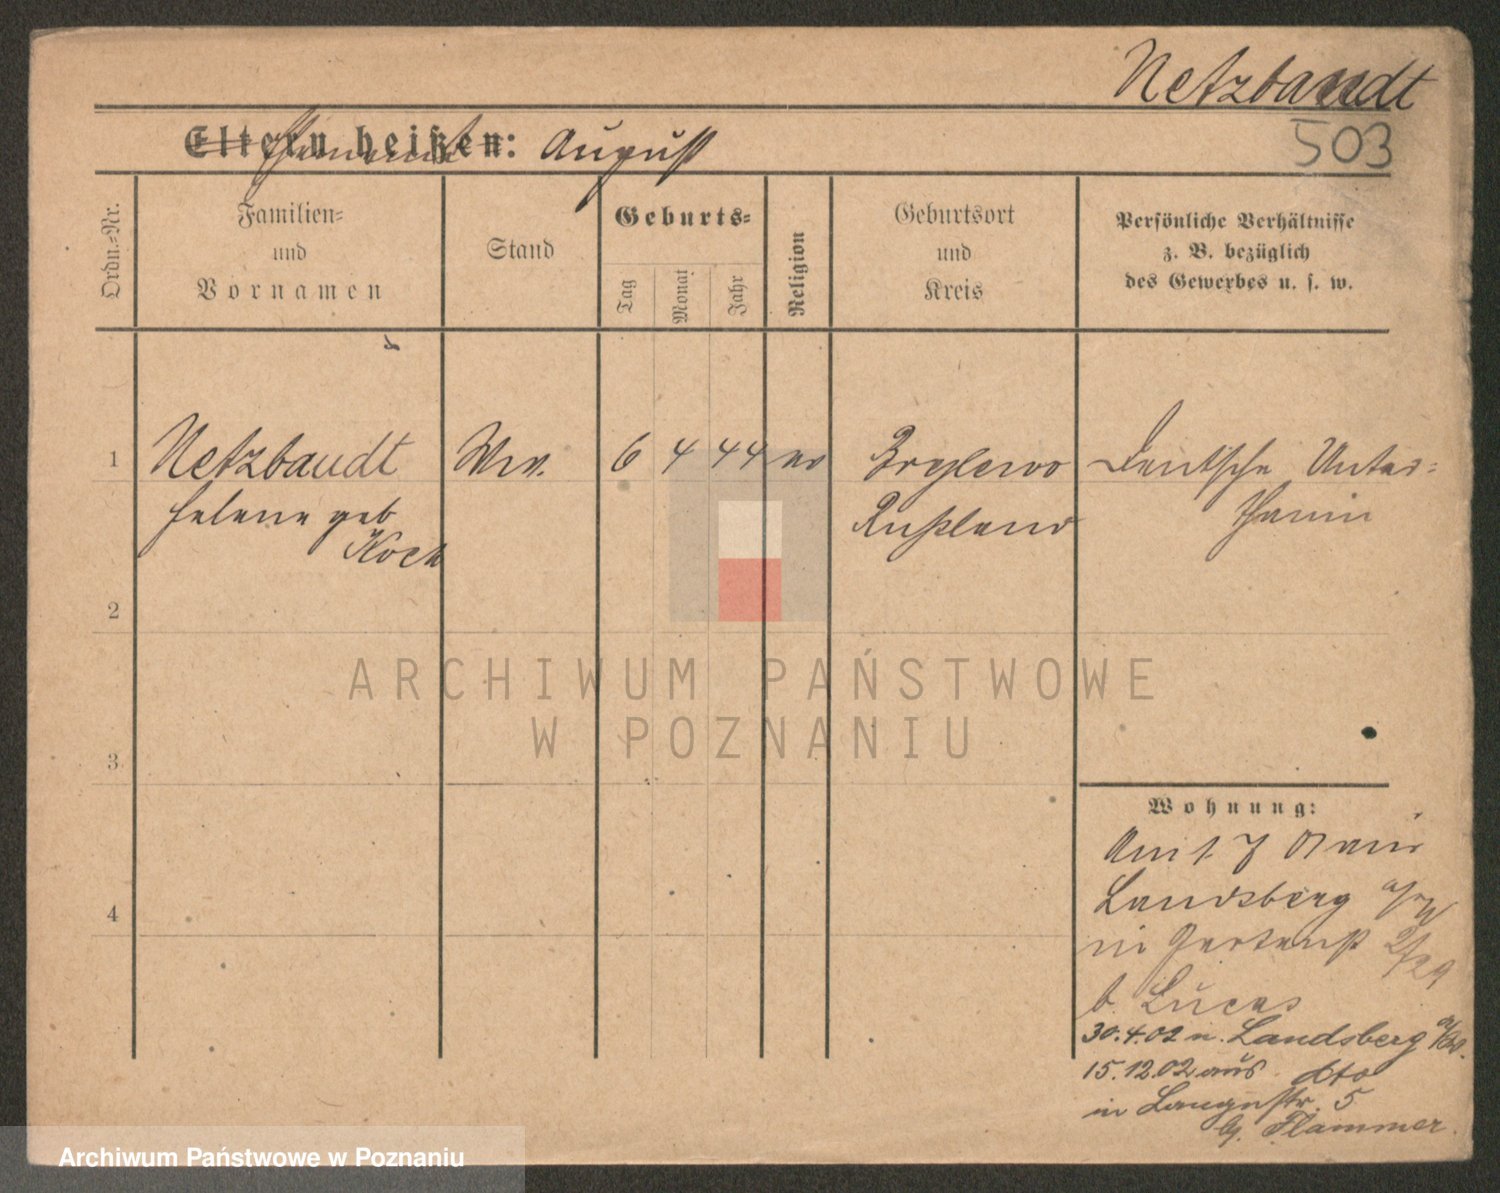 Netzbandt
Eltern heißen: August
503
Ordn.-Nr.
Familien-
und
Vornamen
Stand
Geburts-
Tag
Monat
Jahr
Religion
Geburtsort
und
Kreis
Persönliche Verhältnisse
z. B. bezüglich
des Gewerbes u. s. w.
1 Netzbandt Ww. 6 4 44 ev Brylewo Deutsche Unter-
Helene geb Rußland thanin
Koch
2
3
4
Wohnung:
Landsberg a/W
in Gartenst 2/29
b. Lucas
30.4.02 n. Landsberg a/W.
15.12.02 aus dto
in Langestr. 5
b. Flammer.
ARCHIWUM PAŃSTWOWE
W POZNANIU
Archiwum Państwowe w Poznaniu